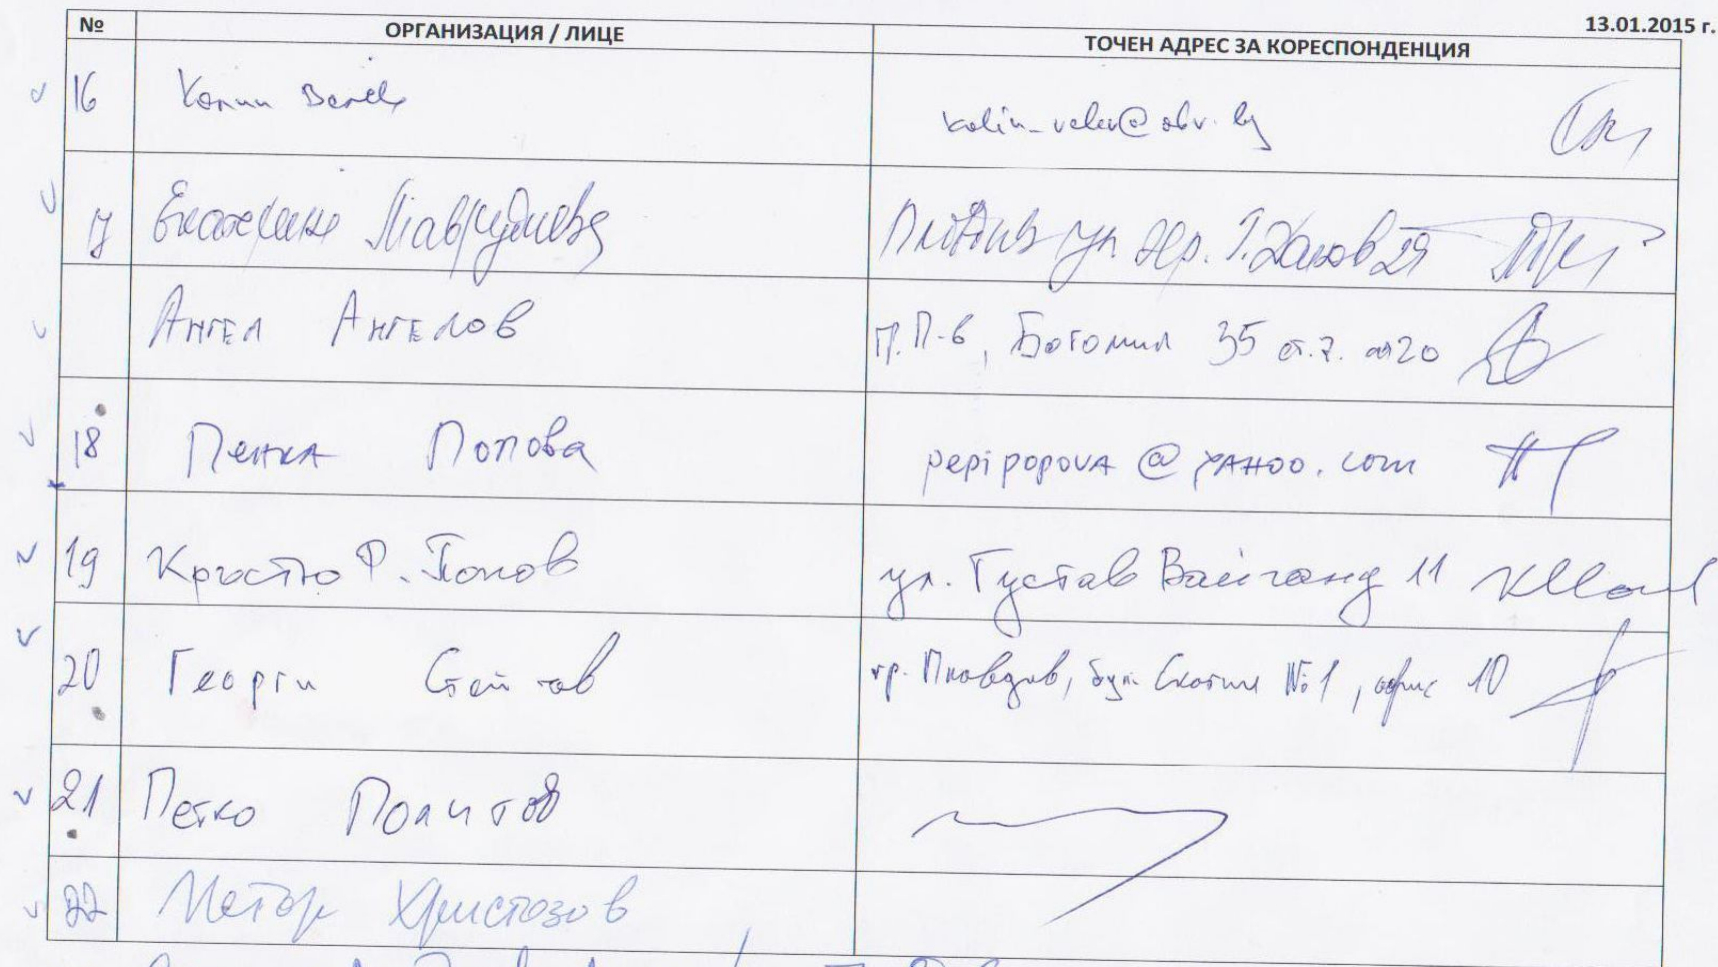 13.01.2015 г.
№ ОРГАНИЗАЦИЯ / ЛИЦЕ ТОЧЕН АДРЕС ЗА КОРЕСПОНДЕНЦИЯ
16 Калин Велев kalin_velev@abv.bg
17 Екатерина Мавродиева Пловдив ул. Хр. Г. Данов 29
Ангел Ангелов гр. П-в, Богомил 35 ет. 7. ап 20
18 Пенка Попова pepipopova @ yahoo.com
19 Кръстю Р. Попов ул. Густав Вайганд 11
20 Георги Стоилов гр. Пловдив, бул. Скопие №1, офис 10
21 Петко Политов
22 Петър Христозов